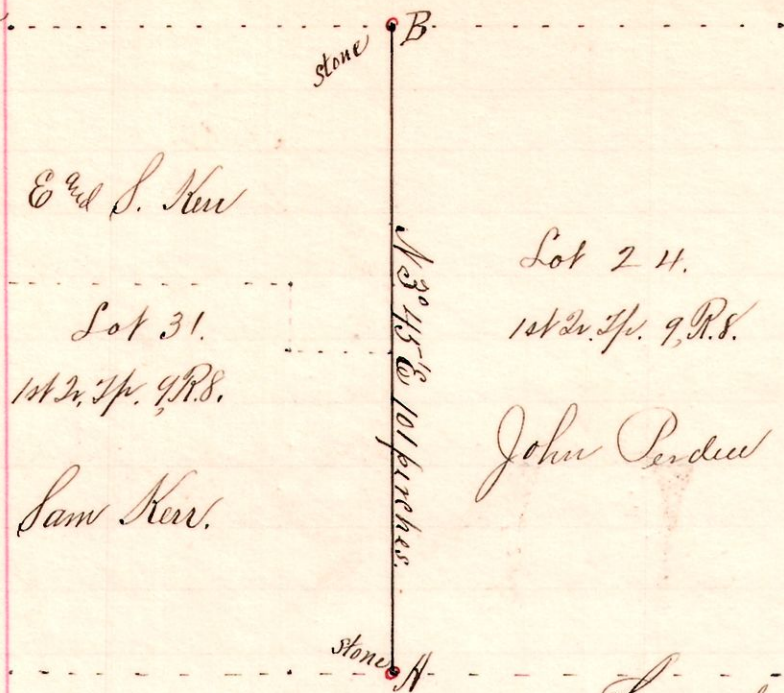 B
stone
E and S. Kerr
Lot 31.
1st Qr. Tp. 9, R. 8.
Sam Kerr.
N 3° 45' E 101 perches.
Lot 24.
1st Qr. Tp. 9, R. 8.
John Perdew
stone
A